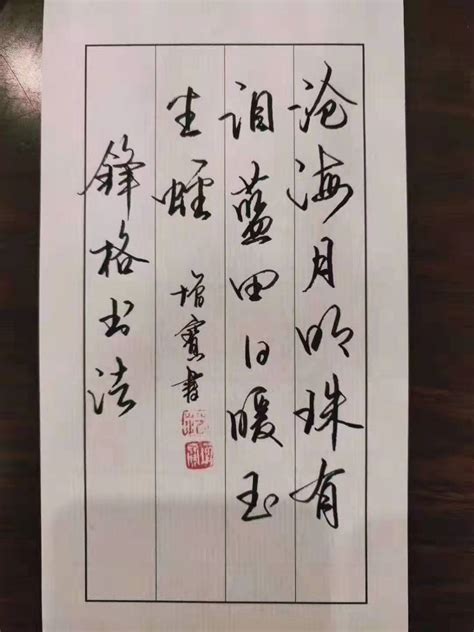 沧海月明珠有
泪蓝田日暖玉
生煙 增寳書
鋒格书法